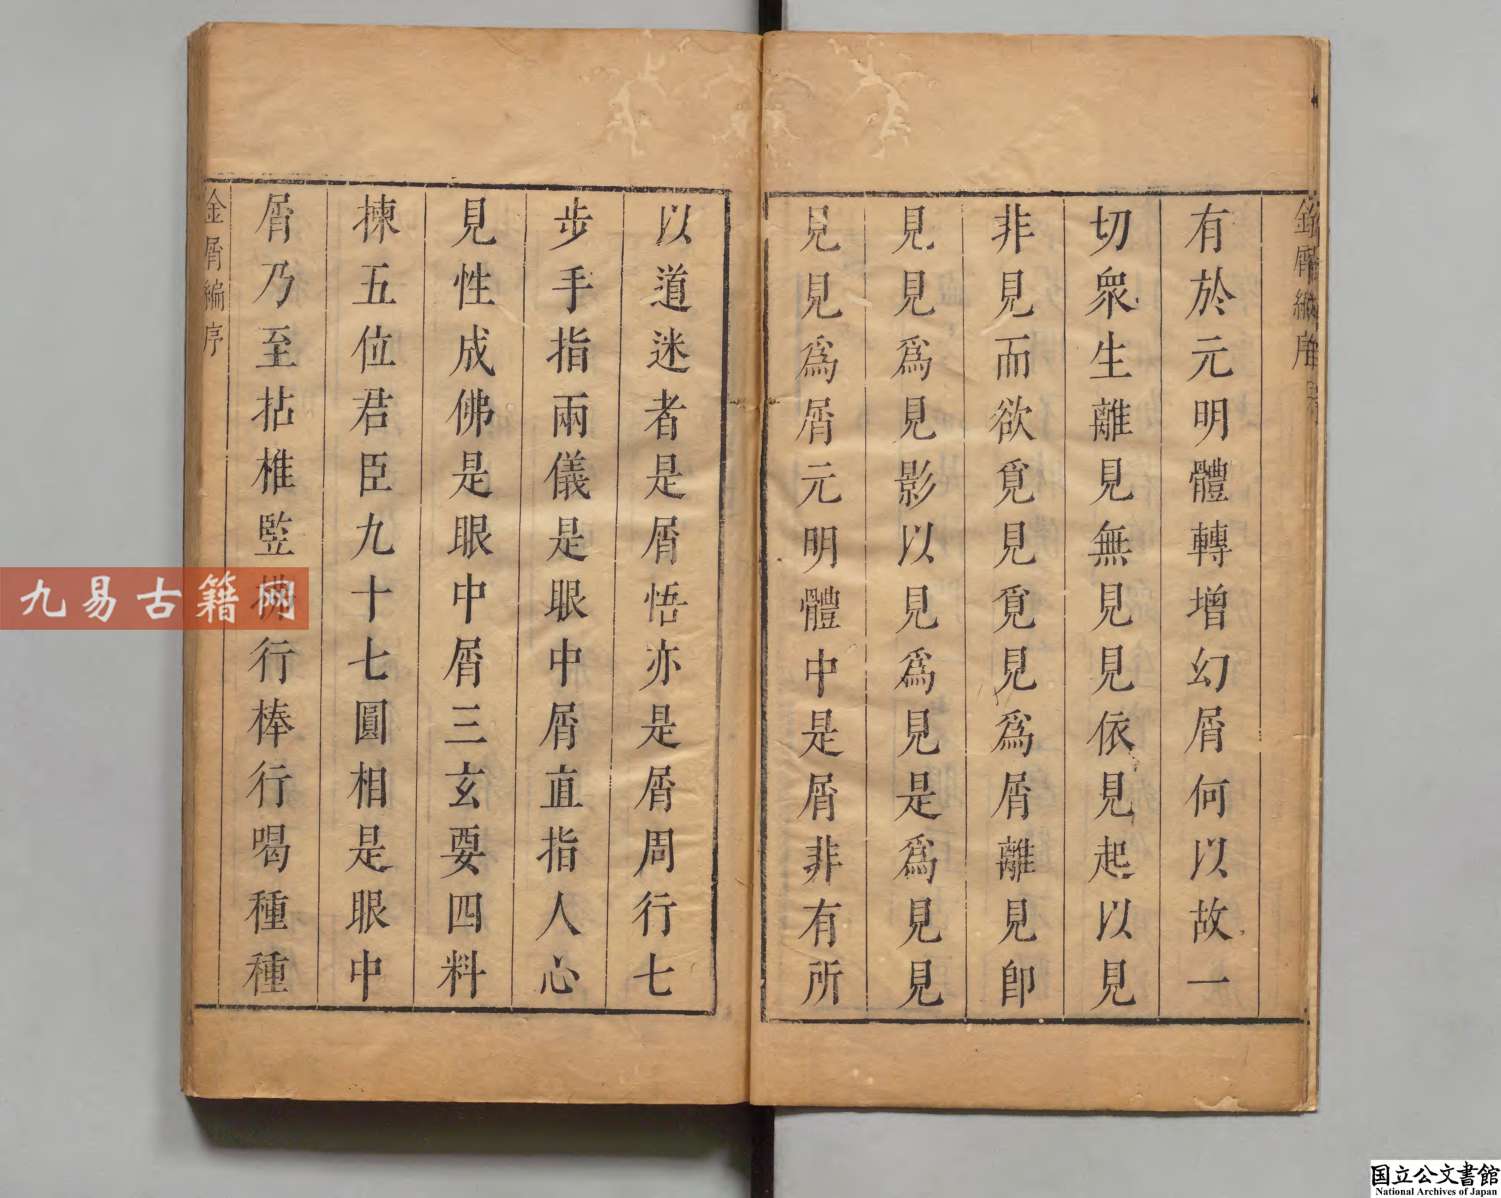 金屑編序
有於元明體轉增幻屑何以故一
切眾生離見無見見依見起以見
非見而欲覓見覓見為屑離見卽
見見為見影以見為見是為見見
見見為屑元明體中是屑非有所
以道迷者是屑悟亦是屑周行七
步手指兩儀是眼中屑直指人心
見性成佛是眼中屑三玄要四料
揀五位君臣九十七圓相是眼中
屑乃至拈椎竪拂行棒行喝種種
金屑編序
九易古籍网
国立公文書館
National Archives of Japan